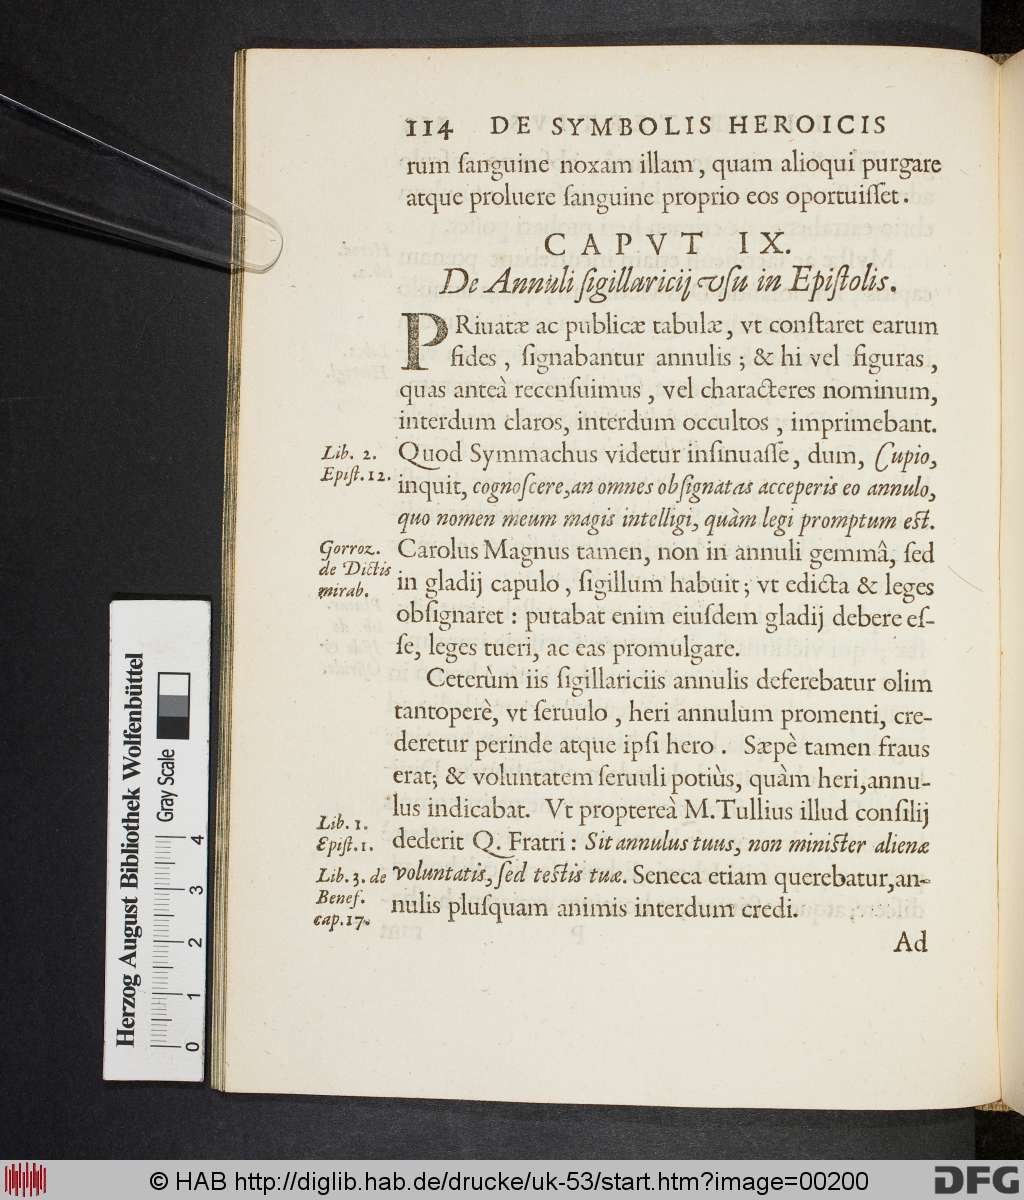 114 DE SYMBOLIS HEROICIS
rum ſanguine noxam illam, quam alioqui purgare
atque proluere ſanguine proprio eos oportuiſſet.
CAPVT IX.
De Annuli ſigillaricij vſu in Epiſtolis.
PRiuatæ ac publicæ tabulæ, vt conſtaret earum
fides, ſignabantur annulis; & hi vel figuras,
quas anteà recenſuimus, vel characteres nominum,
interdum claros, interdum occultos, imprimebant.
Lib. 2.
Epiſt. 12.
Quod Symmachus videtur inſinuaſſe, dum, Cupio,
inquit, cognoſcere, an omnes obſignatas acceperis eo annulo,
quo nomen meum magis intelligi, quàm legi promptum est.
Gorroz.
de Dictis
mirab.
Carolus Magnus tamen, non in annuli gemmâ, ſed
in gladij capulo, ſigillum habuit; vt edicta & leges
obſignaret: putabat enim eiuſdem gladij debere eſ-
ſe, leges tueri, ac eas promulgare.
Ceterùm iis ſigillariciis annulis deferebatur olim
tantoperè, vt ſeruulo, heri annulum promenti, cre-
deretur perinde atque ipſi hero. Sæpè tamen fraus
erat; & voluntatem ſeruuli potiùs, quàm heri, annu-
lus indicabat. Vt proptereà M. Tullius illud conſilij
Lib. 1.
Epiſt. 1.
dederit Q. Fratri: Sit annulus tuus, non minister alienæ
Lib. 3. de
Benef.
cap. 17.
voluntatis, ſed testis tuæ. Seneca etiam querebatur, an-
nulis pluſquam animis interdum credi.
Ad
Herzog August Bibliothek Wolfenbüttel
Gray Scale
0 1 2 3 4
© HAB http://diglib.hab.de/drucke/uk-53/start.htm?image=00200
DFG